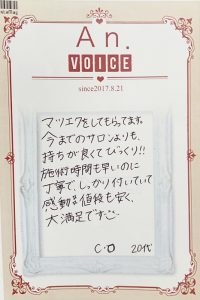 An.
VOICE
since2017.8.21
マツエクをしてもらってます。
今までのサロンよりも、
持ちが良くてびっくり!!
施術時間も早いのに
丁寧で、しっかり付いていて
感動する値段も安く、
大満足です
C・O 20代